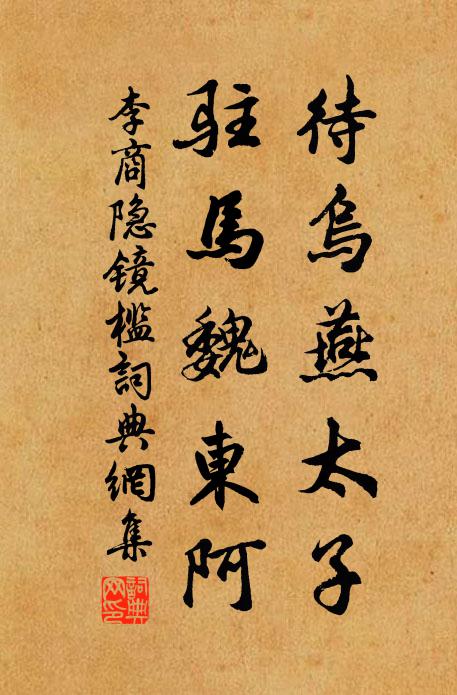 待烏燕太子
駐馬魏東阿
李商隐镜槛詞典網集
詞典网印